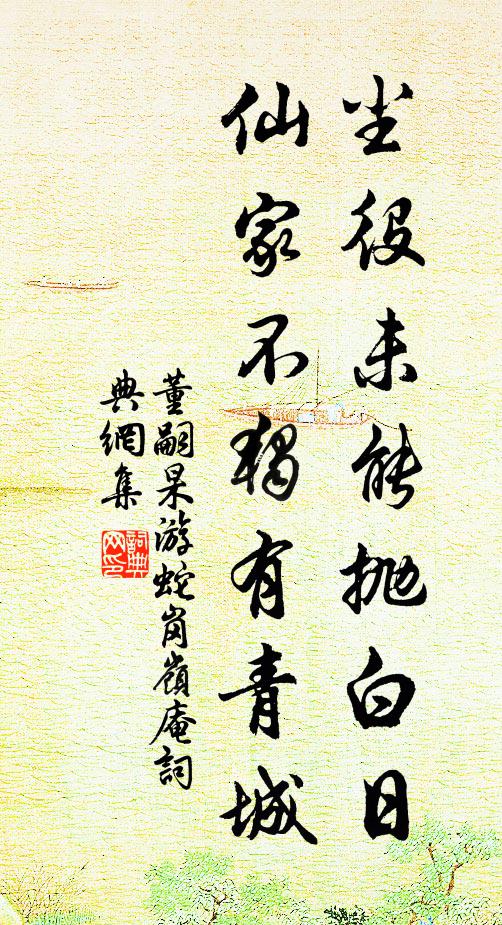 尘役未能抛白日
仙家不独有青城
董嗣杲游蛇岗岭庵詞
典網集
詞典网印